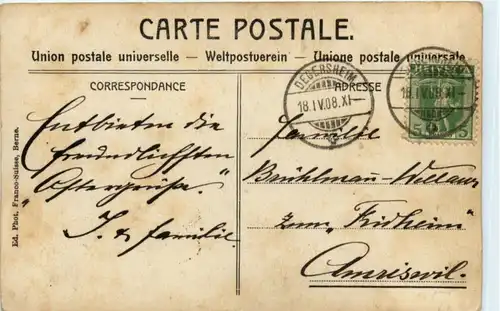 CARTE POSTALE.
Union postale universelle — Weltpostverein — Unione postale universale
CORRESPONDANCE
ADRESSE
DEGERSHEIM
18.IV.08.XI-
18.IV.08.XI-
5 5
Entbieten die
freundlichsten
"Ostergrüße."
J. & Familie.
Familie
Brühlmann-
zum "Fridheim"
Amriswil.
Ed. Phot. Franco-Suisse, Berne.